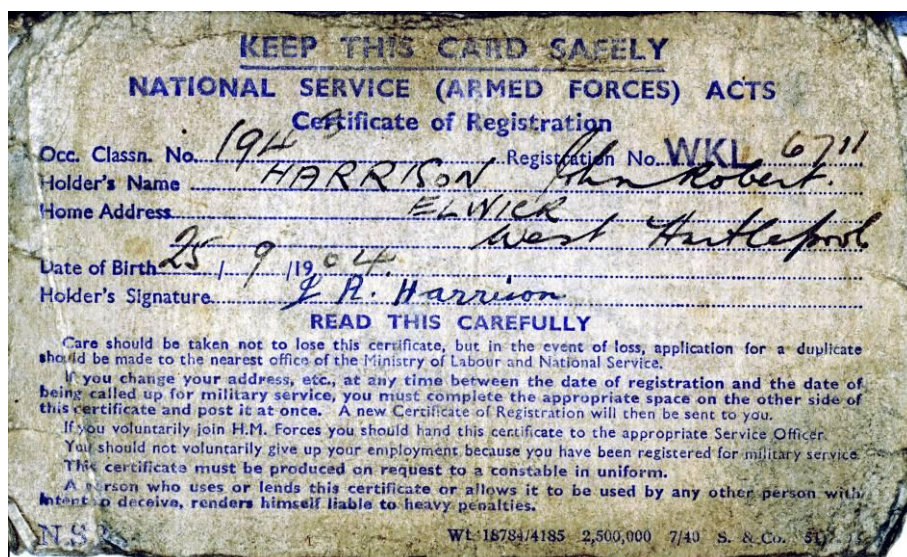 KEEP THIS CARD SAFELY
NATIONAL SERVICE (ARMED FORCES) ACTS
Certificate of Registration
Occ. Classn. No. 194 Registration No. WKL 6711
Holder's Name HARRISON John Robert.
Home Address ELWICK
West Hartlepool
Date of Birth 25 / 9 /19 04.
Holder's Signature J R. Harrison
READ THIS CAREFULLY
Care should be taken not to lose this certificate, but in the event of loss, application for a duplicate
should be made to the nearest office of the Ministry of Labour and National Service.
If you change your address, etc., at any time between the date of registration and the date of
being called up for military service, you must complete the appropriate space on the other side of
this certificate and post it at once. A new Certificate of Registration will then be sent to you.
If you voluntarily join H.M. Forces you should hand this certificate to the appropriate Service Officer.
You should not voluntarily give up your employment because you have been registered for military service.
This certificate must be produced on request to a constable in uniform.
A person who uses or lends this certificate or allows it to be used by any other person with
intent to deceive, renders himself liable to heavy penalties.
N.S. Wt. 18784/4185 2,500,000 7/40 S. & Co.